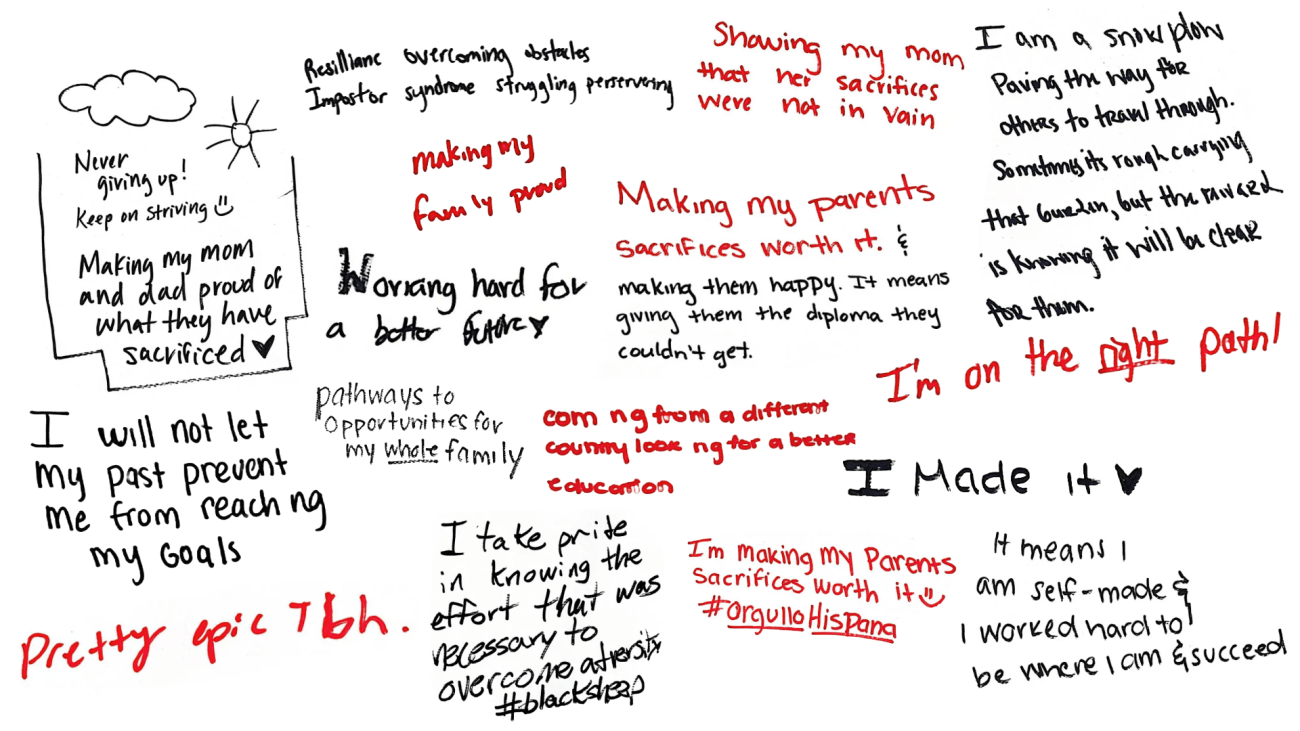 Never
giving up!
Keep on striving
Making my mom
and dad proud of
what they have
sacrificed
Resilliance overcoming obstacles
Impostor syndrome struggling perservering
making my
family proud
Showing my mom
that her sacrifices
were not in vain
I am a snowplow
Paving the way for
others to travel through.
Sometimes its rough carrying
that burden, but the reward
is knowing it will be clear
for them.
Working hard for
a better future
Making my parents
sacrifices worth it. &
making them happy. It means
giving them the diploma they
couldn't get.
I'm on the right path!
I will not let
my past prevent
me from reaching
my Goals
pathways to
opportunities for
my whole family
coming from a different
country looking for a better
education
I Made it
Pretty epic Tbh.
I take pride
in knowing the
effort that was
necessary to
overcome adversity
#blacksheep
I'm making my Parents
Sacrifices worth it
#OrgulloHispana
It means I
am self-made &
I worked hard to
be where I am & succeed